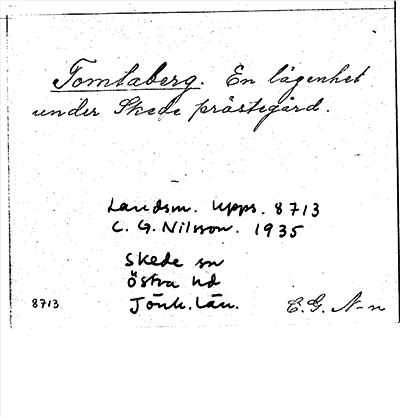 Tomtaberg. En lägenhet
under Skede prästegård.
Landsm. Upps. 8713
C. G. Nilsson. 1935
Skede sn
Östra hd
Jönk. län.
8713
C.G. N-n